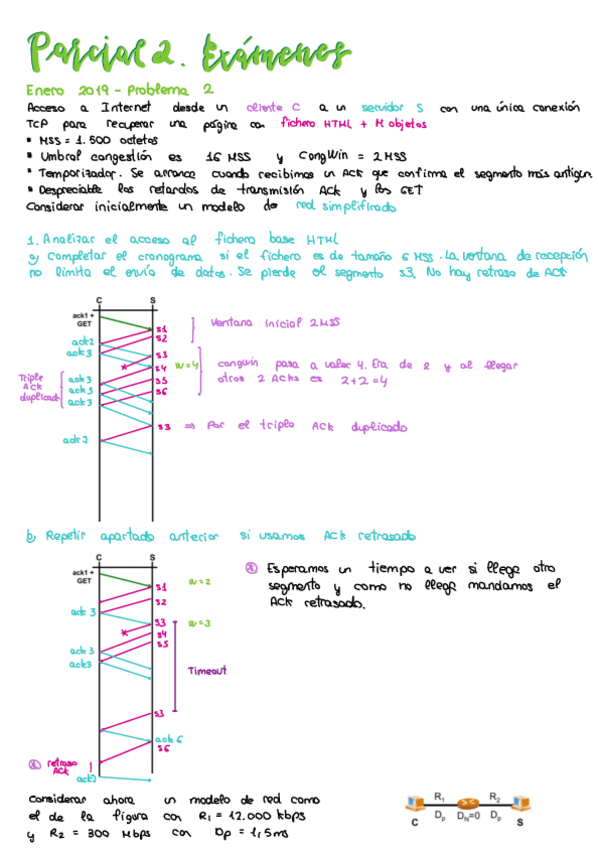 Parcial 2. Exámenes
Enero 2019 - Problema 2
Acceso a Internet desde un cliente C a un servidor S con una única conexión
TCP para recuperar una página con fichero HTML + M objetos
• MSS = 1.500 octetos
• Umbral congestión es 16 MSS y CongWin = 2MSS
• Temporizador. Se arranca cuando recibimos un ACK que confirma el segmento más antiguo.
• Despreciable los retardos de transmisión ACK y los GET
Considerar inicialmente un modelo de red simplificado
1. Analizar el acceso al fichero base HTML
a) Completar el cronograma si el fichero es de tamaño 6 MSS. La ventana de recepción
no limita el envío de datos. Se pierde el segmento s3. No hay retraso de ACK
C S
ack1 +
GET
s1
s2
Ventana inicial 2MSS
ack2
ack3
s3
s4
s5
s6
w=4
congwin pasa a valer 4. Era de 2 y al llegar
otros 2 ACKs es 2+2=4
Triple
ACK
duplicado
ack 3
ack 3
ack 3
s3 ⇒ Por el triple ACK duplicado
ack 7
b) Repetir apartado anterior si usamos ACK retrasado
C S
ack1 +
GET
s1
s2
w=2
ack 3
s3
s4
s5
w=3
ack 3
ack3
Timeout
s3
ack 6
s6
⊛ retraso
ACK
ack7
⊛ Esperamos un tiempo a ver si llega otro
segmento y como no llega mandamos el
ACK retrasado.
Considerar ahora un modelo de red como
el de la figura con R1 = 12.000 kbps
y R2 = 300 Mbps con Dp = 1,5ms
R1 R2
Dp DN=0 Dp
C S